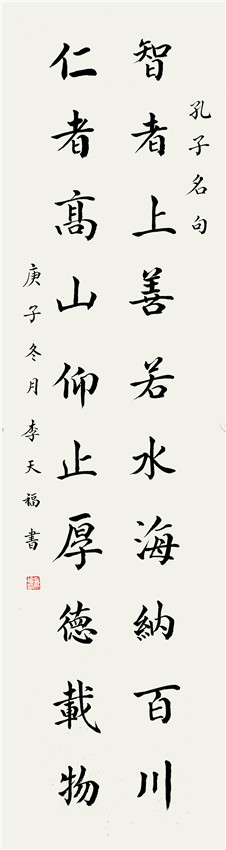 孔子名句
智者上善若水海納百川
仁者高山仰止厚德載物
庚子冬月李天福書